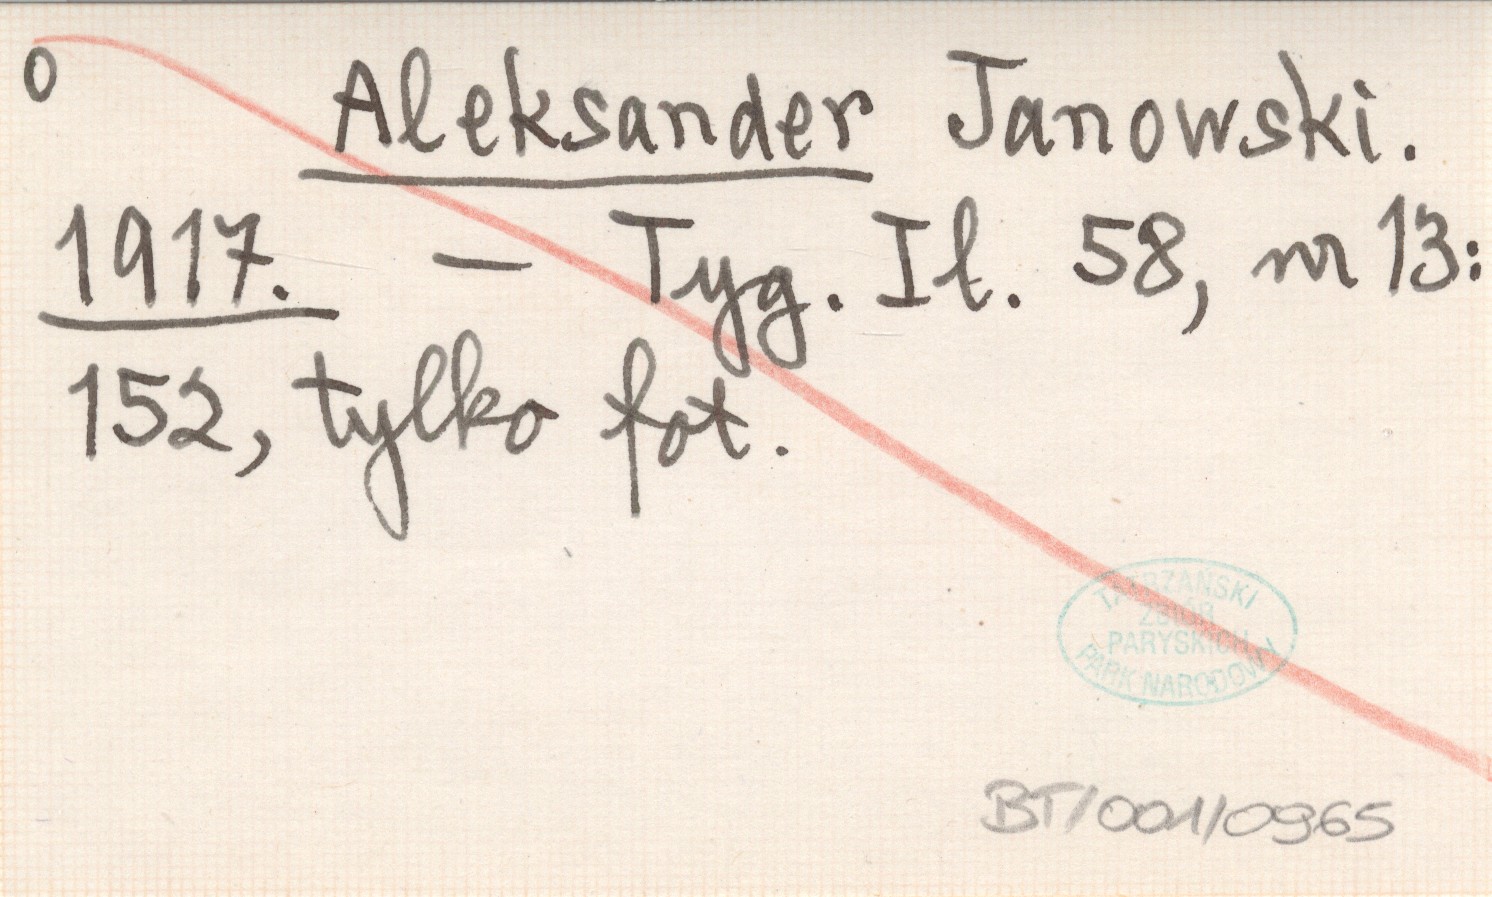 0
Aleksander Janowski.
1917. — Tyg. Il. 58, nr 13:
152, tylko fot.
TATRZAŃSKI
ZBIÓR
PARYSKICH
PARK NARODOWY
BT/001/0965